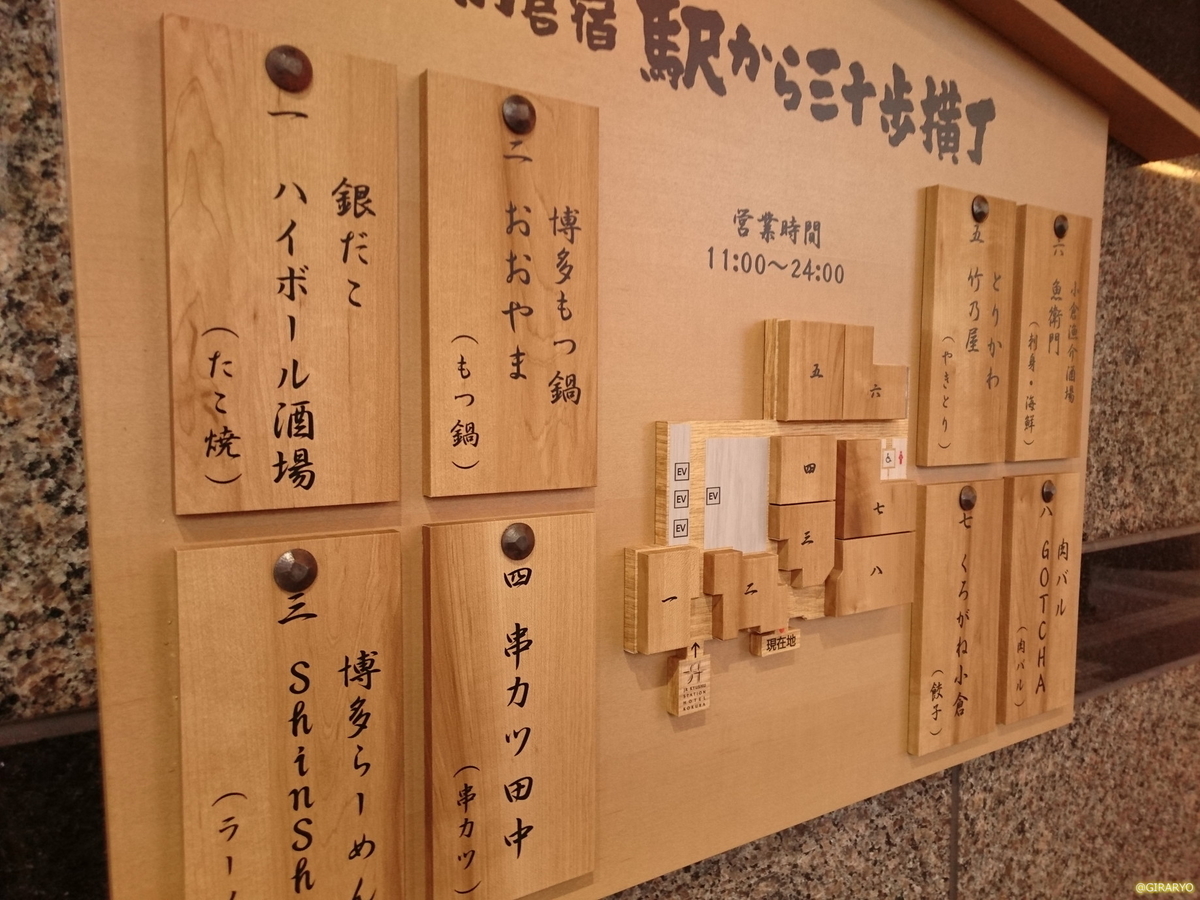 倉宿 駅から三十歩横丁
営業時間
11:00～24:00
一 銀だこ
ハイボール酒場
（たこ焼）
二 博多もつ鍋
おおやま
（もつ鍋）
三 博多らーめん
ShinSh
（ラー
四 串カツ田中
（串カツ）
五 とりかわ
竹乃屋
（やきとり）
六 小倉漁介酒場
魚衛門
（刺身・海鮮）
七 くろがね小倉
（餃子）
八 肉バル
GOTCHA
（肉バル）
五
六
四
七
三
八
一
二
EV
EV
EV
EV
現在地
JR KYUSHU
STATION
HOTEL
KOKURA
@GIRARYO